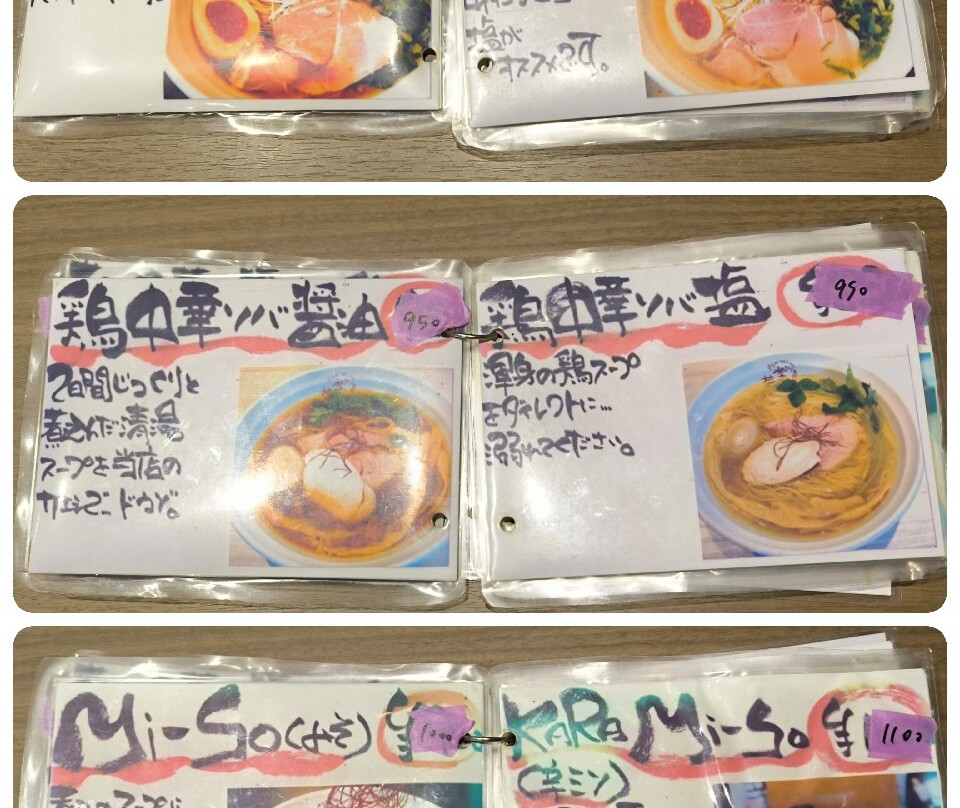 塩が
オススメです。
鶏中華ソバ醤油
950
2日間じっくりと
煮込んだ清湯
スープを当店の
カエシで…ドウゾ。
鶏中華ソバ塩
950
渾身の鶏スープ
をダイレクトに…
溺れてください。
Mi-So(みそ)
1000
KARA Mi-So
1100
(辛ミソ)